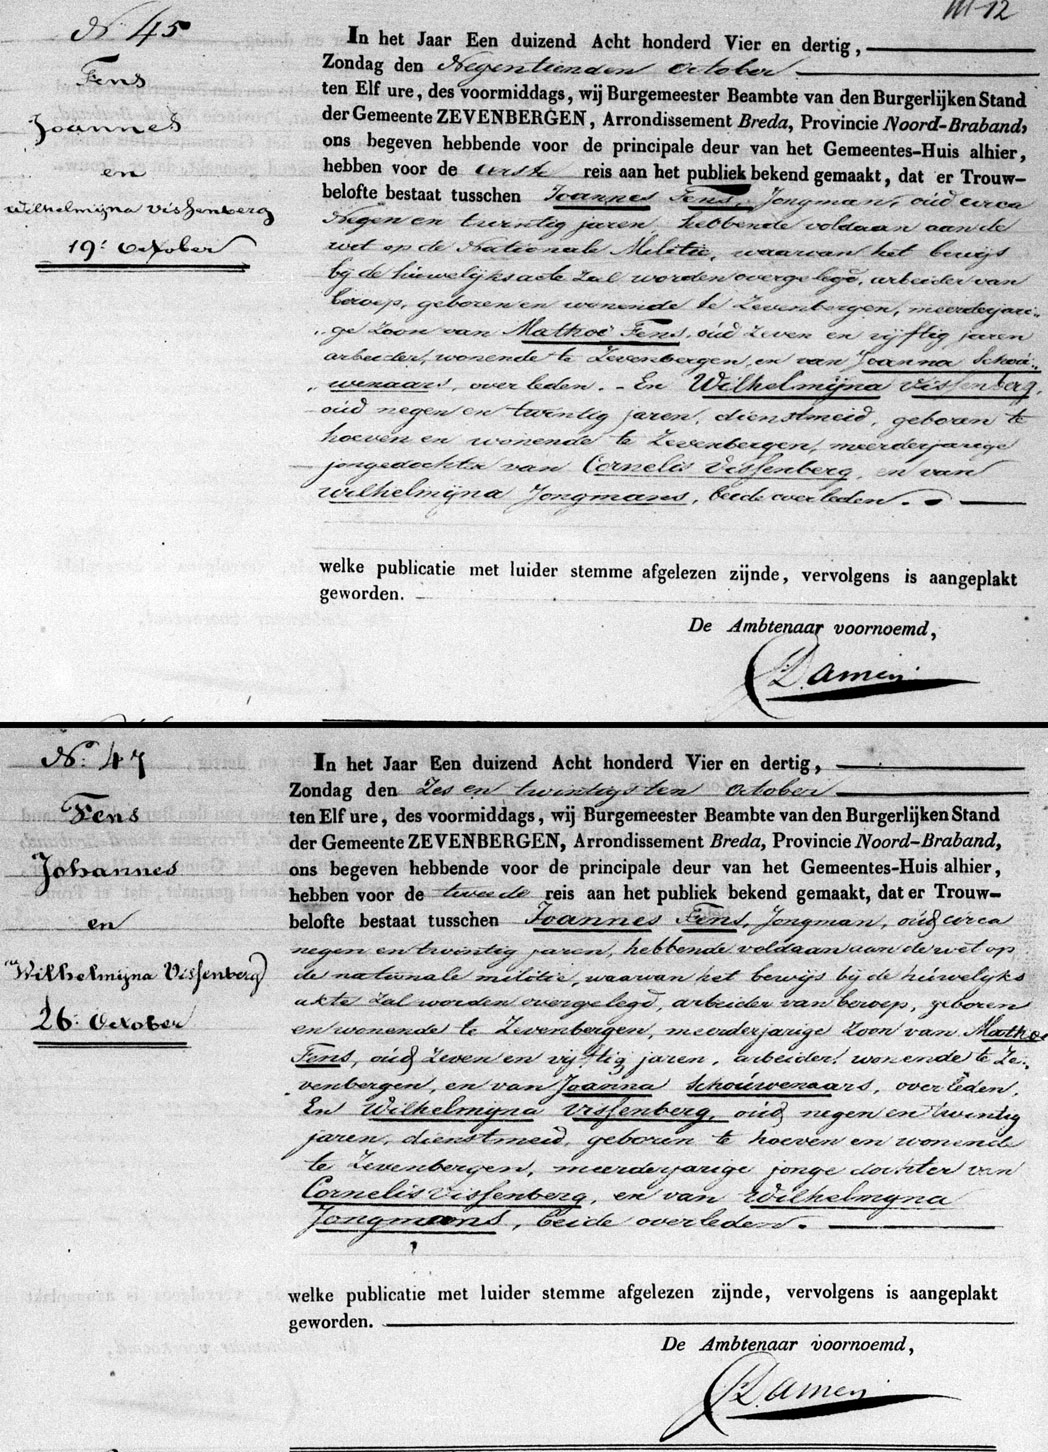 III-12
N 45
Fens
Joannes
en
Wilhelmijna Vissenberg
19: October
In het Jaar Een duizend Acht honderd Vier en dertig,
Zondag den Negentienden October
ten Elf ure, des voormiddags, wij Burgemeester Beambte van den Burgerlijken Stand
der Gemeente ZEVENBERGEN, Arrondissement Breda, Provincie Noord-Braband,
ons begeven hebbende voor de principale deur van het Gemeentes-Huis alhier,
hebben voor de eerste reis aan het publiek bekend gemaakt, dat er Trouw-
belofte bestaat tusschen Joannes Fens, Jongman, oud circa
Negen en twintig jaren, hebbende voldaan aan de
wet op de Nationale Militie, waarvan het bewijs
bij de huwelijksacte zal worden overgelegd, arbeider van
beroep, geboren en wonende te Zevenbergen, meerderjari-
ge zoon van Mathoe Fens, oud zeven en vijftig jaren
arbeider, wonende te Zevenbergen, en van Joanna Schou-
wenaars, overleden. - En Wilhelmijna Vissenberg,
oud negen en twintig jaren, dienstmeid, geboren te
hoeven en wonende te Zevenbergen, meerderjarige
jongedochter van Cornelis Vissenberg, en van
Wilhelmijna Jongmans, beide overleden.
welke publicatie met luider stemme afgelezen zijnde, vervolgens is aangeplakt
geworden.
De Ambtenaar voornoemd,
Damen
N: 47
Fens
Johannes
en
Wilhelmijna Vissenberg
26: October
In het Jaar Een duizend Acht honderd Vier en dertig,
Zondag den Zes en twintigsten October
ten Elf ure, des voormiddags, wij Burgemeester Beambte van den Burgerlijken Stand
der Gemeente ZEVENBERGEN, Arrondissement Breda, Provincie Noord-Braband,
ons begeven hebbende voor de principale deur van het Gemeentes-Huis alhier,
hebben voor de tweede reis aan het publiek bekend gemaakt, dat er Trouw-
belofte bestaat tusschen Joannes Fens, Jongman, oud circa
negen en twintig jaren, hebbende voldaan aan de wet op
de nationale militie, waarvan het bewijs bij de huwelijks
akte zal worden overgelegd, arbeider van beroep, geboren
en wonende te Zevenbergen, meerderjarige zoon van Mathoe
Fens, oud zeven en vijftig jaren, arbeider, wonende te Ze-
venbergen, en van Joanna Schouwenaars, overleden.
En Wilhelmijna Vissenberg, oud negen en twintig
jaren, dienstmeid, geboren te hoeven en wonende
te Zevenbergen, meerderjarige jonge dochter van
Cornelis Vissenberg, en van Wilhelmyna
Jongmans, beide overleden.
welke publicatie met luider stemme afgelezen zijnde, vervolgens is aangeplakt
geworden.
De Ambtenaar voornoemd,
Damen